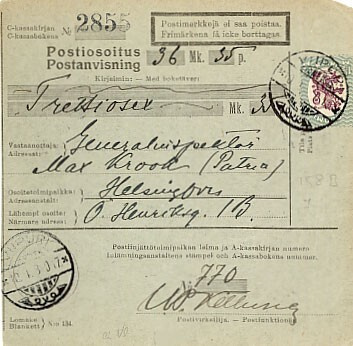 C-kassakirjan
C-kassabokens
N:o 2855
Postimerkkejä ei saa poistaa.
Frimärkena få icke borttagas
Postiosoitus
Postanvisning
36 Mk. 35 p.
Kirjaimin: — Med bokstäver:
Trettiosex Mk. 35
Vastaanottaja:
Adressat:
Generalinspektor
Max Krook (Patria)
Osoitetoimipaikka:
Adressanstalt:
Helsingfors
Lähempi osoite:
Närmare adress:
O. Henriksg. 1B
Postinjättötoimipaikan leima ja A-kassakirjan numero
Inlämningsanstaltens stempel och A-kassabokens nummer.
770
Lomake
Blankett N:o 134.
Postivirkailija. - Postfunktionär